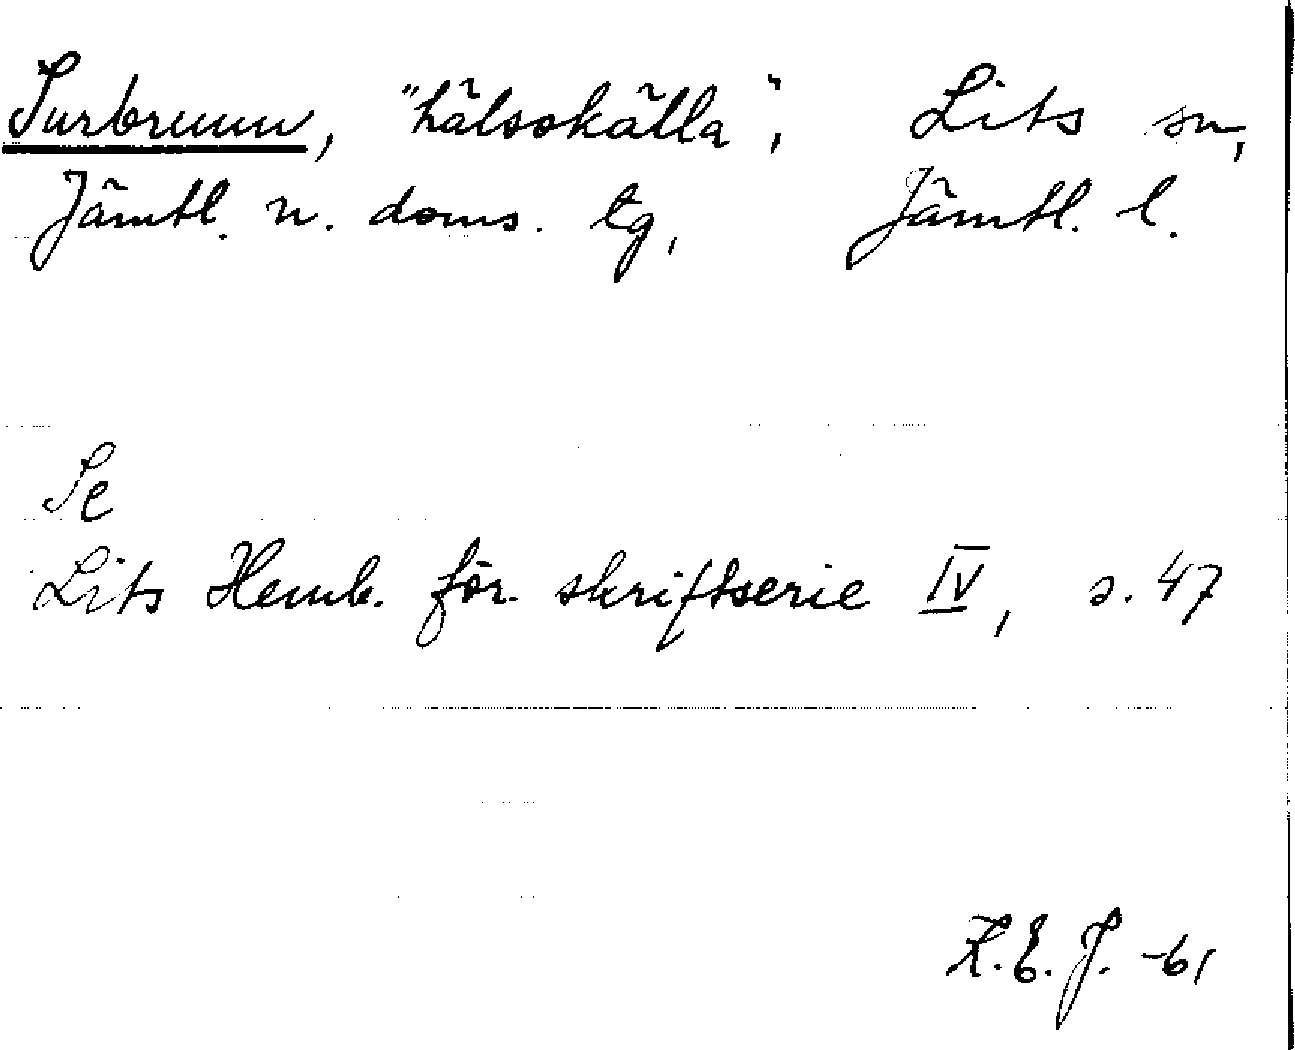 Surbrunn, "hälsokälla", Lits sn,
Jämtl. n. doms. tg, Jämtl. l.
Se
Lits Hemb. för. skriftserie IV, s. 47
K.E.J. -61